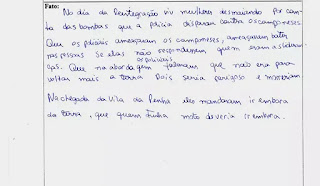 Fato:
No dia da Reintegração viu mulheres desmaiando por cau
da das bombas que a polícia disparou contra os camponeses.
Que os policiais ameaçaram os camponeses, ameaçavam bater
nas pessoas se elas não respondessem quem eram as lideran-
ças. Que na abordagem os policiais falaram que não era para
voltar mais a terra Pois seria perigoso e morreriam
Na chegada da Vila da Penha eles mandaram ir embora
da terra, que quem tinha moto deveria ir embora.